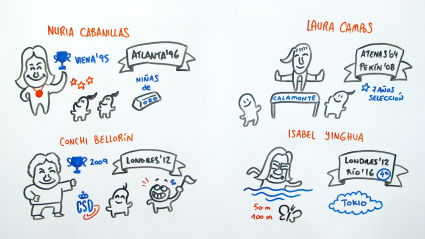 NURIA CABANILLAS
VIENA'95
ATLANTA'96
NIÑAS
de
ORO
LAURA CAMPS
ATENAS'04
PEKÍN'08
7 AÑOS
SELECCIÓN
CALAMONTE
CONCHI BELLORÍN
2009
LONDRES'12
CSD
ISABEL YINGHUA
LONDRES'12
RÍO'16 4ª
50 m
100 m
TOKIO